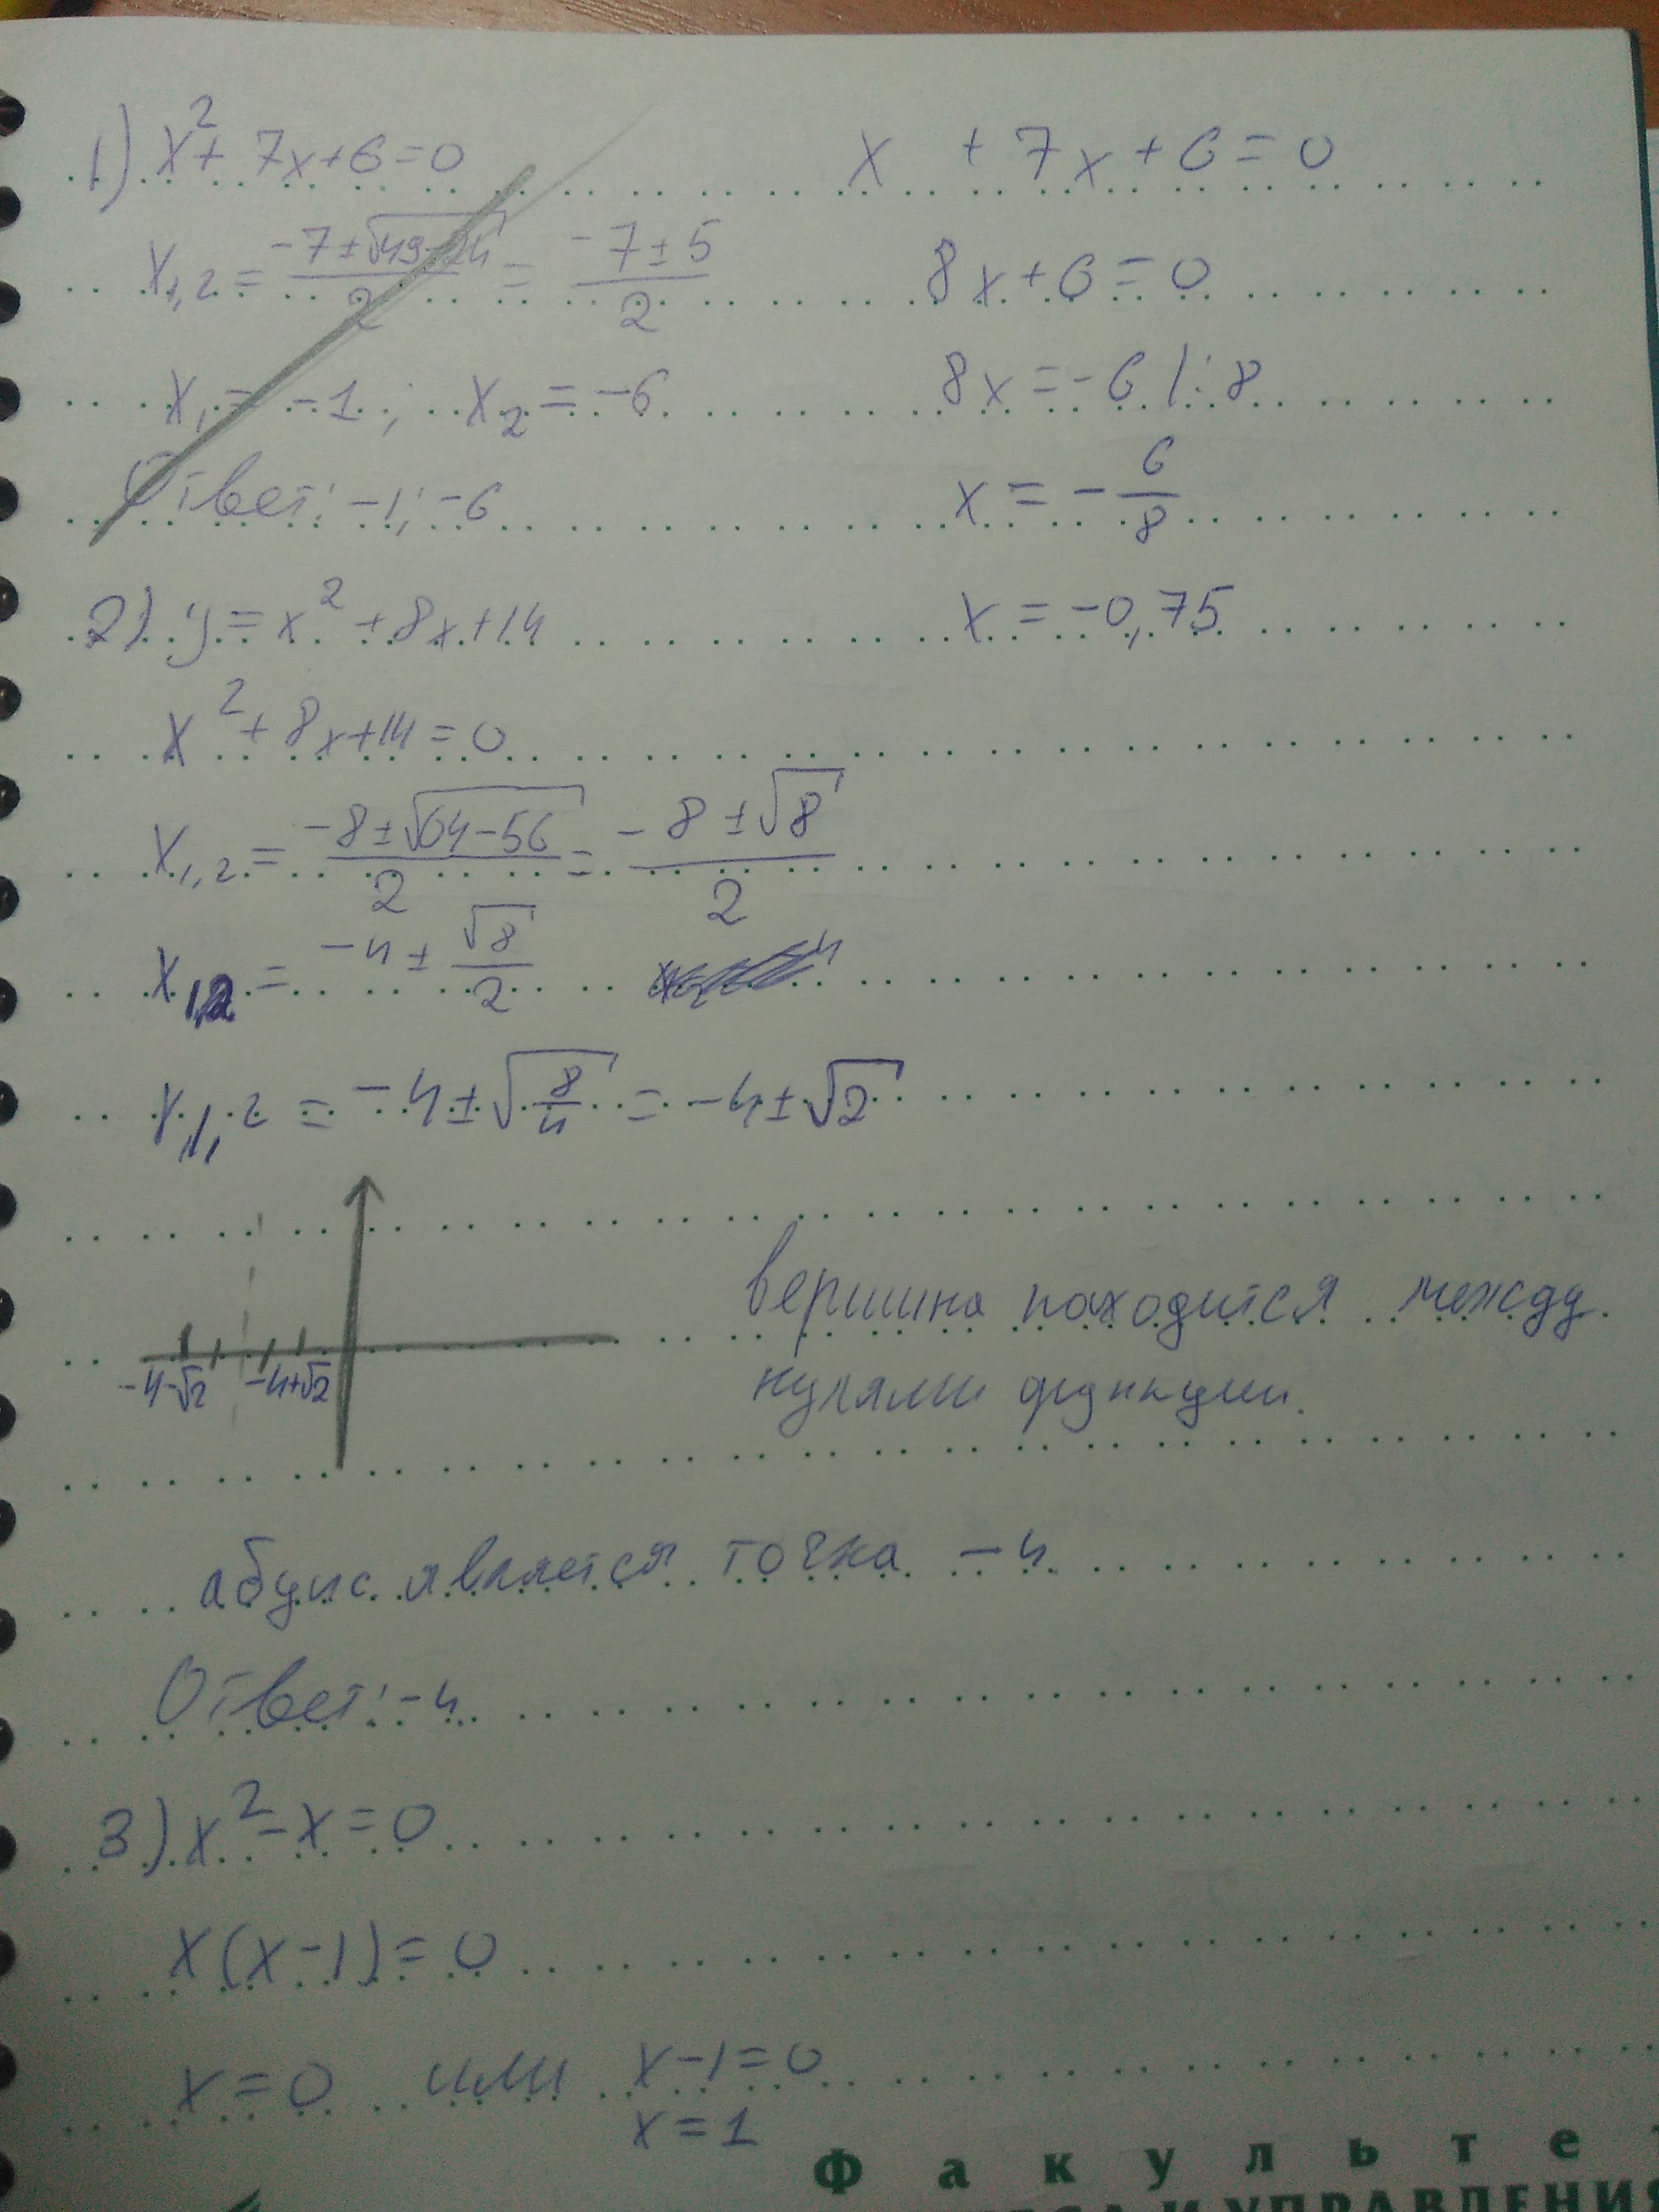 1) x² + 7x + 6 = 0
x₁,₂ = (-7 ± √(49-24))/2 = (-7 ± 5)/2
x₁ = -1; x₂ = -6
Ответ: -1; -6
x + 7x + 6 = 0
8x + 6 = 0
8x = -6 |: 8
x = -6/8
x = -0,75
2) y = x² + 8x + 14
x² + 8x + 14 = 0
x₁,₂ = (-8 ± √(64-56))/2 = (-8 ± √8)/2
x₁,₂ = -4 ± √8/2
x₁,₂ = -4 ± √(8/4) = -4 ± √2
-4-√2 -4+√2
вершина находится между
нулями функции.
абцис является точка -4
Ответ: -4
3) x² - x = 0
x(x-1) = 0
x = 0 или x - 1 = 0
x = 1
Факульте
И УПРАВЛЕНИЯ